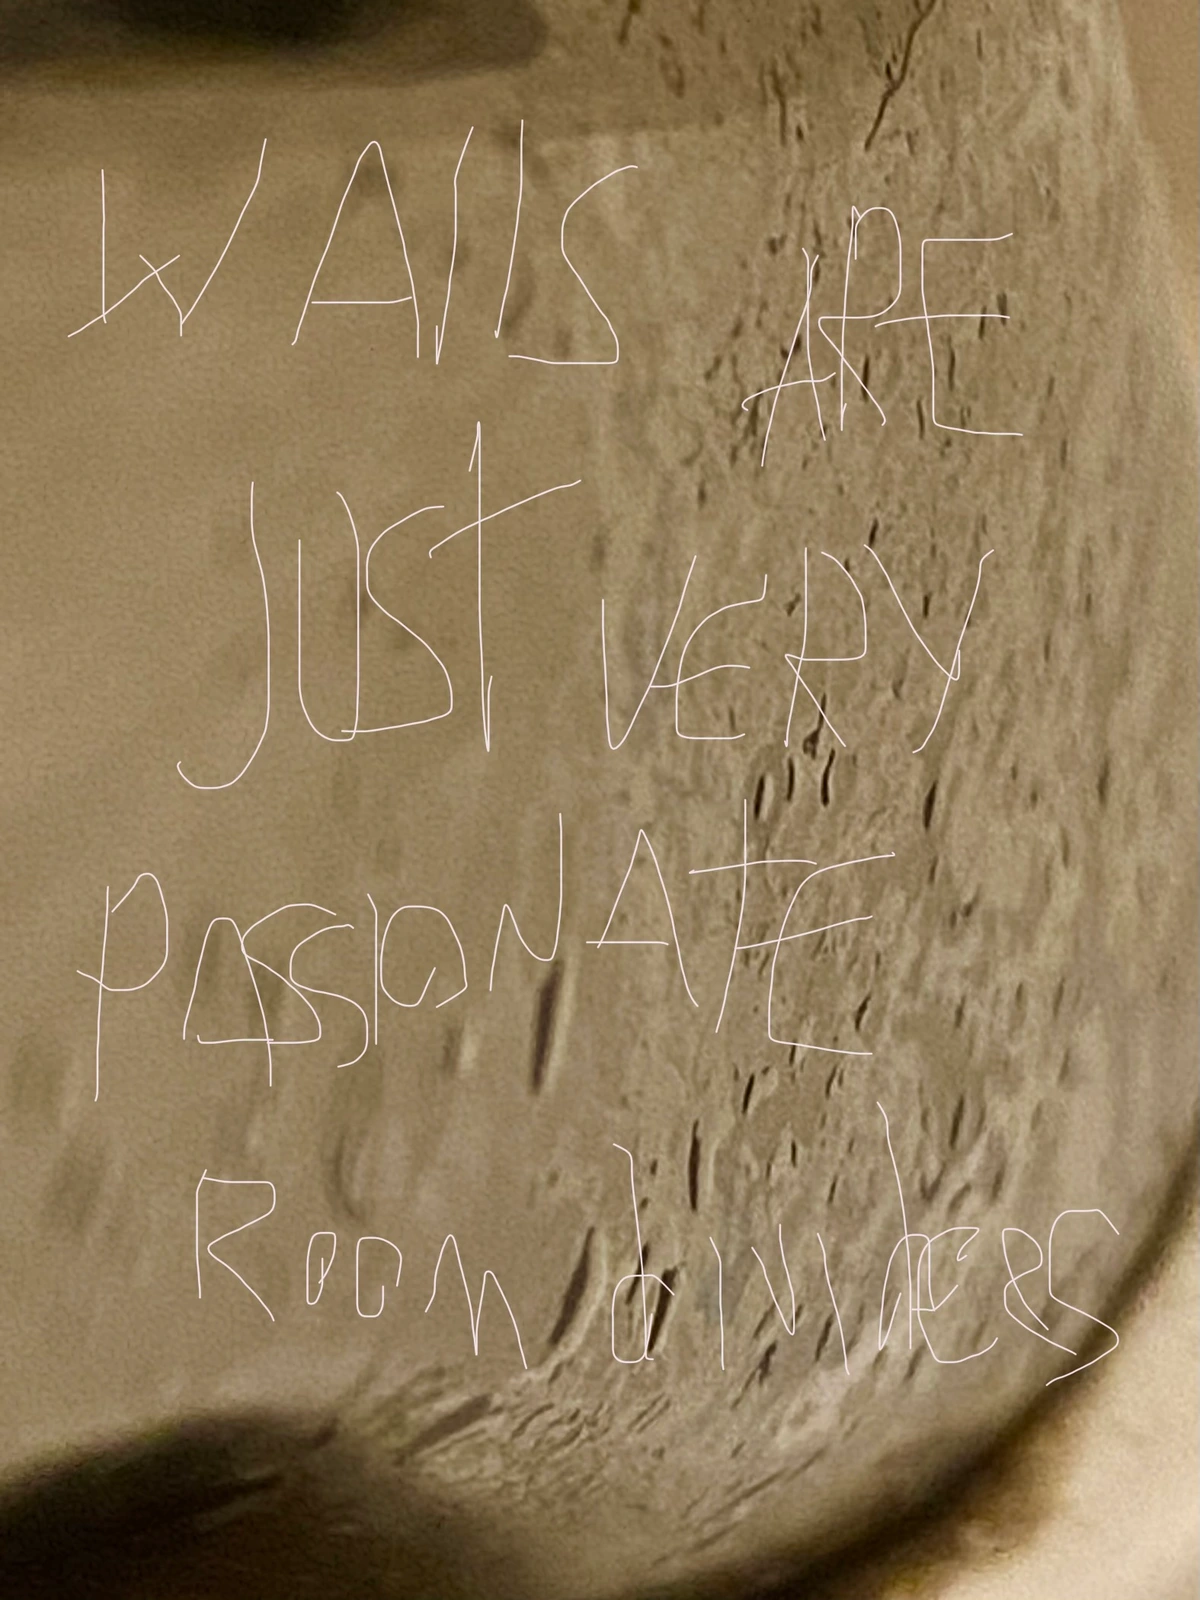 WAllS ARE
JUST VERY
PASSIONATE
ROOM dIVIdERS